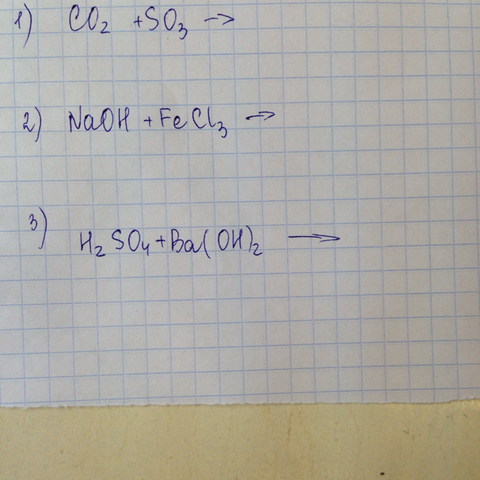 1) CO₂ + SO₃ →
2) NaOH + FeCl₃ →
3) H₂SO₄ + Ba(OH)₂ →